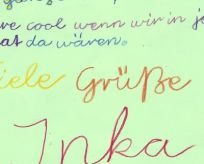 re cool wenn wir in je
at da wären.
iele Grüße
Inka